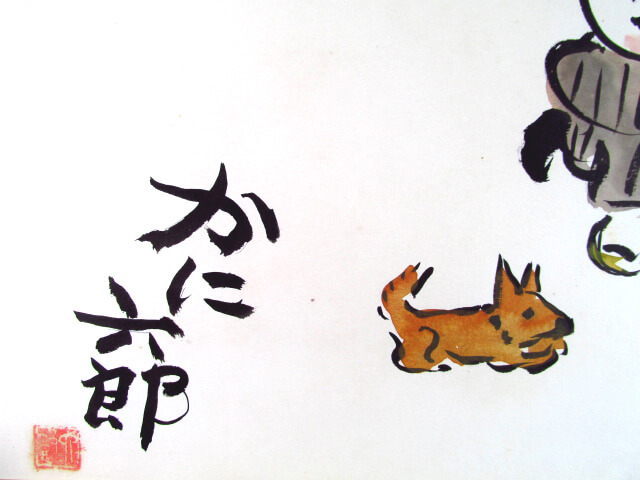 かに
六郎